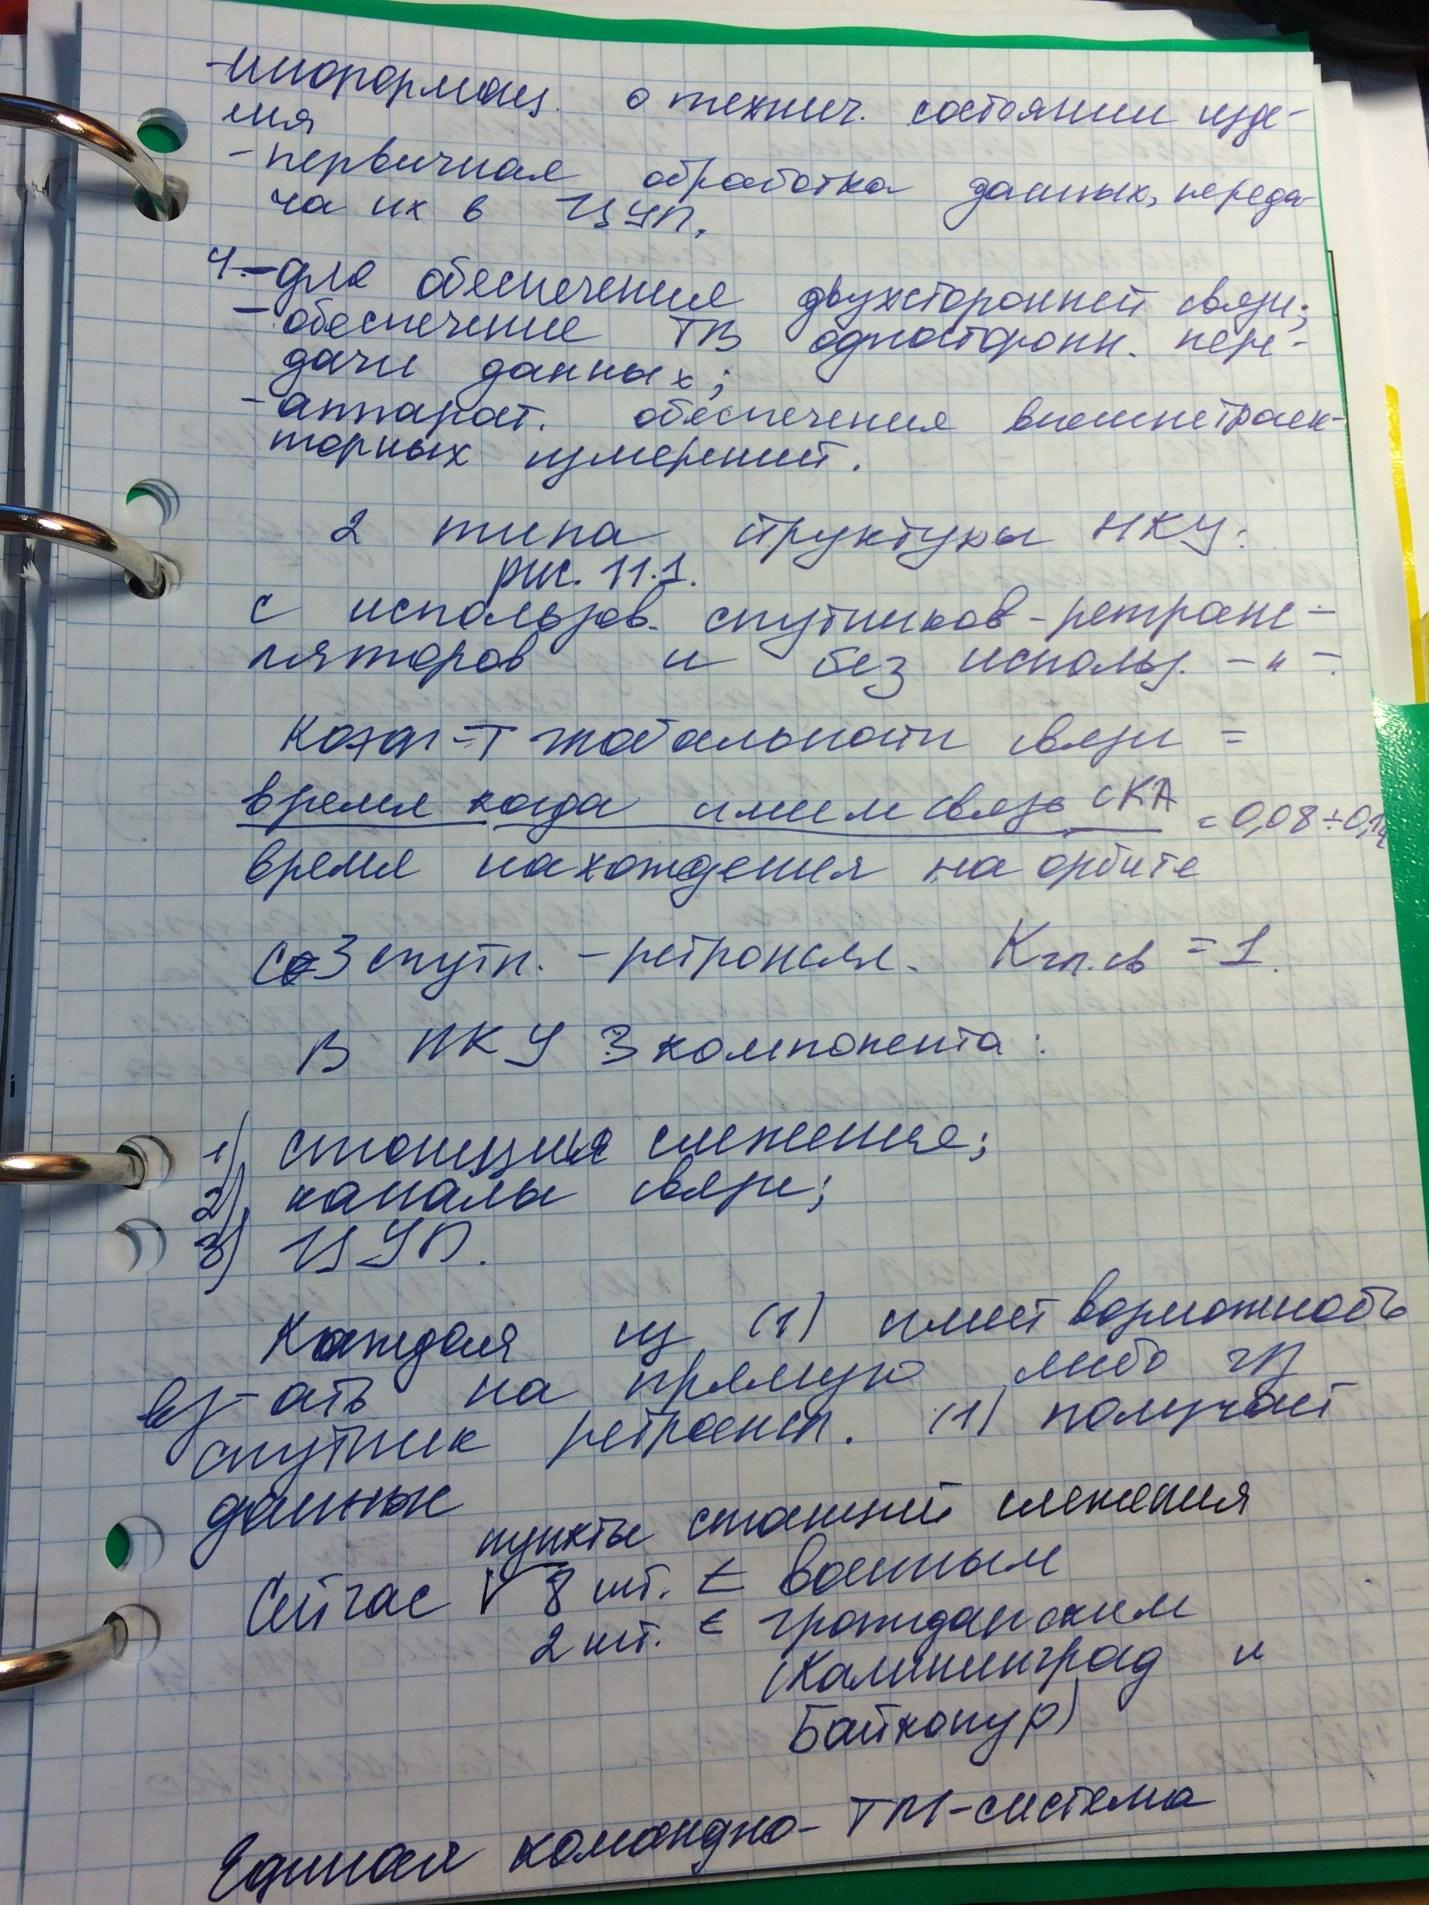 -информац. о технич. состоянии изде-
лия
- первичная обработка данных, переда-
ча их в ЦУП.
4. - для обеспечения двухсторонней связи;
- обеспечение ТВ односторонн. пере-
дачи данных;
- аппарат. обеспечения внешнетраек-
торных измерений.
2 типа структуры НКУ:
рис. 11.1.
с использов. спутников-ретранс-
ляторов и без использ. -"-.
Коэф-т глобальности связи =
время когда имеем связь с КА = 0,08÷0,12
время нахождения на орбите
Со 3 спутн. -ретрансл. Кгл.св = 1.
В НКУ 3 компонента:
1) станция слежения;
2) каналы связи;
3) ЦУП.
Каждая из (1) имеет возможность
вз-ать на прямую либо ч/з
спутник ретрансл. (1) получает
данные
пункты станций слежения
Сейчас 8 шт. ∈ военным
2 шт. ∈ гражданским
(Калининград и
Байконур)
Единая командно-ТМ-система